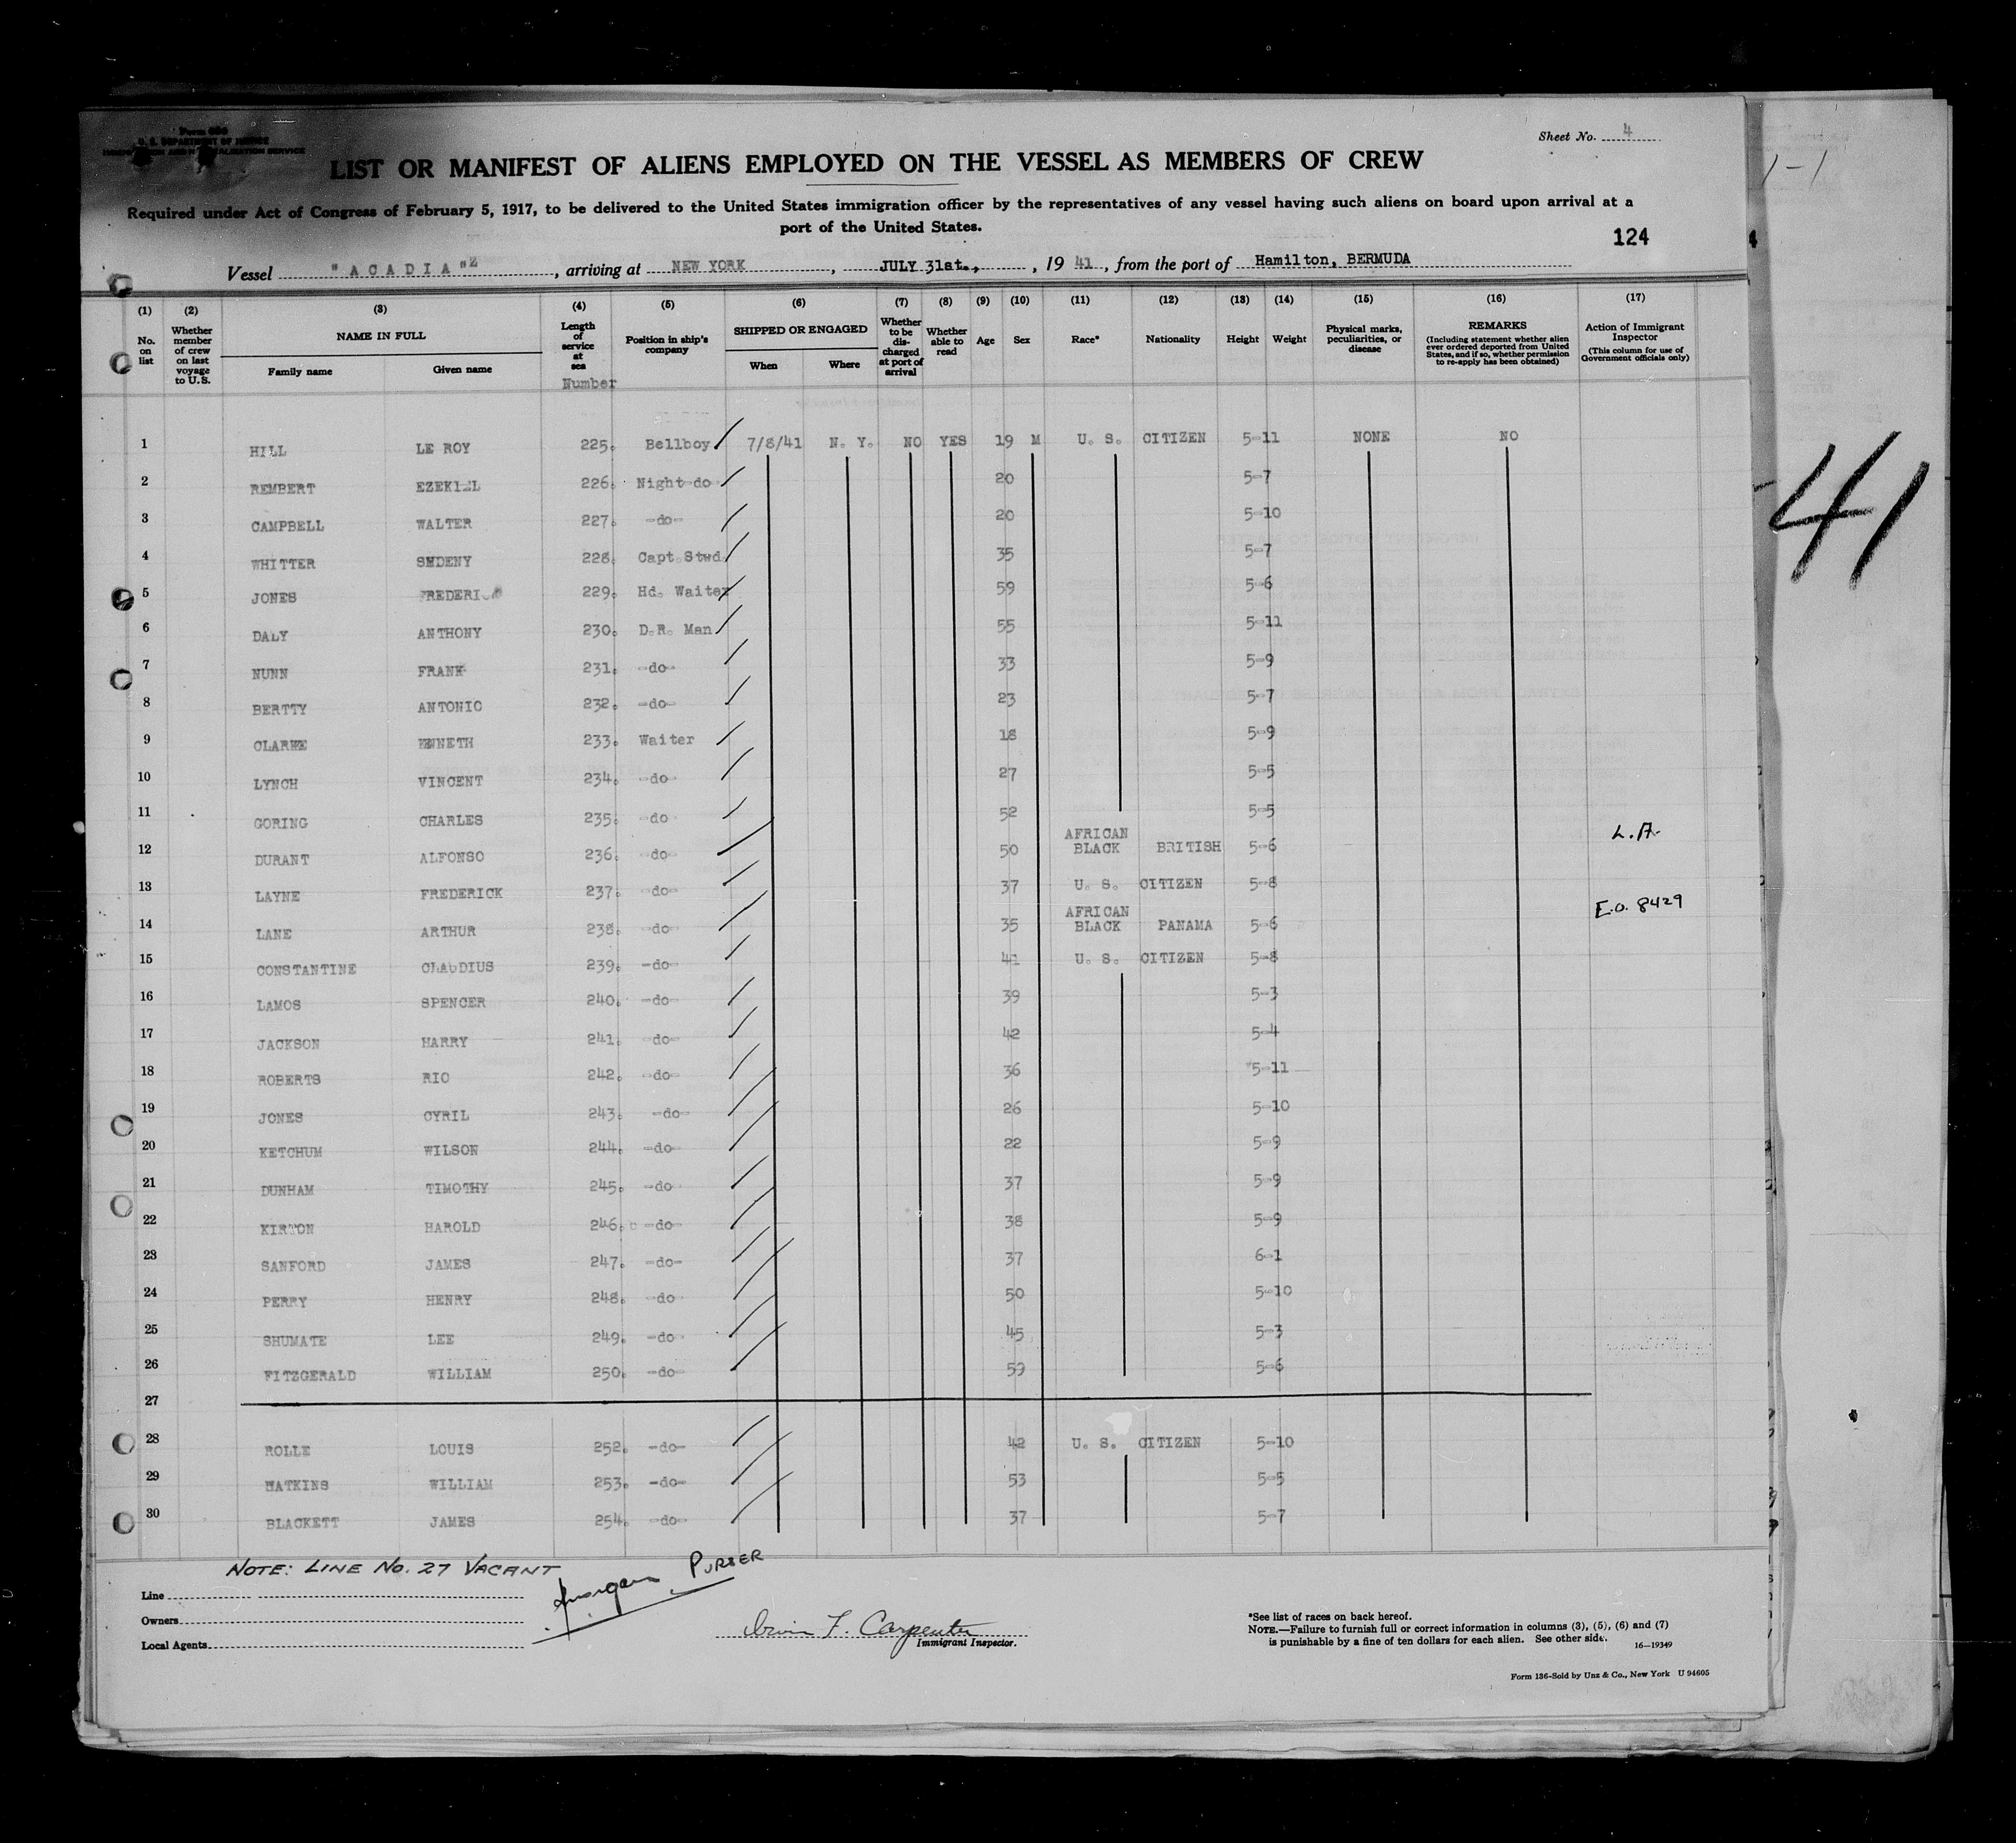 Sheet No. 4
LIST OR MANIFEST OF ALIENS EMPLOYED ON THE VESSEL AS MEMBERS OF CREW
Required under Act of Congress of February 5, 1917, to be delivered to the United States immigration officer by the representatives of any vessel having such aliens on board upon arrival at a
port of the United States.
124
Vessel "ACADIA" , arriving at NEW YORK , JULY 31st., , 19 41 , from the port of Hamilton, BERMUDA
(1) (2) (3) (4) (5) (6) (7) (8) (9) (10) (11) (12) (13) (14) (15) (16) (17)
No. on list
Whether member of crew on last voyage to U.S.
NAME IN FULL
Family name Given name
Length of service at sea
Number
Position in ship's company
SHIPPED OR ENGAGED
When Where
Whether to be discharged at port of arrival
Whether able to read
Age
Sex
Race*
Nationality
Height
Weight
Physical marks, peculiarities, or disease
REMARKS
(Including statement whether alien ever ordered deported from United States, and if so, whether permission to re-apply has been obtained)
Action of Immigrant Inspector
(This column for use of Government officials only)
1 HILL LE ROY 225. Bellboy 7/8/41 N. Y. NO YES 19 M U. S. CITIZEN 5-11 NONE NO
2 REMBERT EZEKIEL 226. Night-do- 20 5-7
3 CAMPBELL WALTER 227. -do- 20 5-10
4 WHITTER 228. Capt.Stwd. 35 5-7
5 JONES 229. Hd. Waiter 59 5-6
6 DALY ANTHONY 230. D.R. Man 55 5-11
7 NUNN FRANK 231. -do- 33 5-9
8 BERTTY ANTONIO 232. -do- 23 5-7
9 CLARKE KENNETH 233. Waiter 18 5-9
10 LYNCH VINCENT 234. -do- 27 5-5
11 GORING CHARLES 235. -do- 52 5-5
12 DURANT ALFONSO 236. -do- 50 AFRICAN BLACK BRITISH 5-6 L.A.
13 LAYNE FREDERICK 237. -do- 37 U. S. CITIZEN 5-8
14 LANE ARTHUR 238. -do- 35 AFRICAN BLACK PANAMA 5-6 E.O. 8429
15 CONSTANTINE CLAUDIUS 239. -do- 41 U. S. CITIZEN 5-8
16 LAMOS SPENCER 240. -do- 39 5-3
17 JACKSON HARRY 241. -do- 42 5-4
18 ROBERTS RIO 242. -do- 36 5-11
19 JONES CYRIL 243. -do- 26 5-10
20 KETCHUM WILSON 244. -do- 22 5-9
21 DUNHAM TIMOTHY 245. -do- 37 5-9
22 KIRTON HAROLD 246. -do- 38 5-9
23 SANFORD JAMES 247. -do- 37 6-1
24 PERRY HENRY 248. -do- 50 5-10
25 SHUMATE LEE 249. -do- 45 5-3
26 FITZGERALD WILLIAM 250. -do- 59 5-6
27
28 ROLLE LOUIS 252. -do- 42 U. S. CITIZEN 5-10
29 WATKINS WILLIAM 253. -do- 53 5-5
30 BLACKETT JAMES 254. -do- 37 5-7
NOTE: LINE NO. 27 VACANT
PURSER
Line
Owners
Local Agents
Irwin F. Carpenter
Immigrant Inspector.
*See list of races on back hereof.
NOTE.—Failure to furnish full or correct information in columns (3), (5), (6) and (7)
is punishable by a fine of ten dollars for each alien. See other side.
16—19349
Form 136-Sold by Unz & Co., New York U 94605
1-1
41